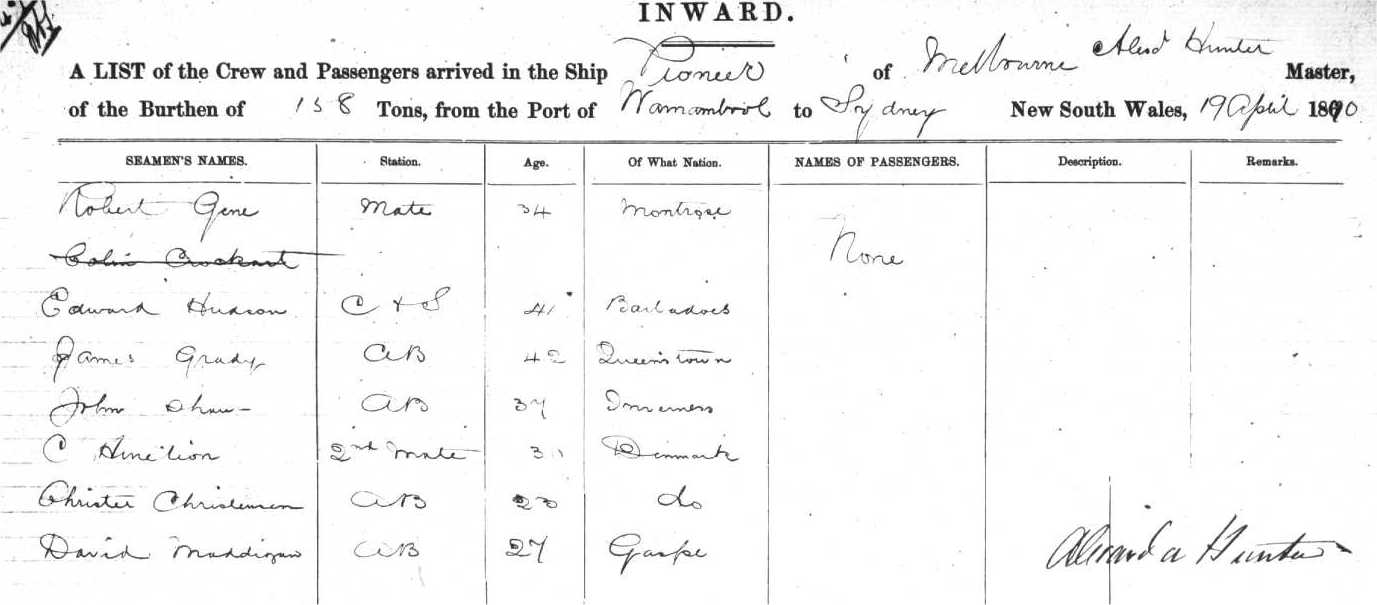 INWARD.
A LIST of the Crew and Passengers arrived in the Ship Pioneer of Melbourne Alexd Hunter Master,
of the Burthen of 158 Tons, from the Port of Warnambool to Sydney New South Wales, 19 April 1870.
SEAMEN'S NAMES. Station. Age. Of What Nation. NAMES OF PASSENGERS. Description. Remarks.
Robert Gene Mate 34 Montrose
None
Colin Crockart
Edward Hudson C & S 41 Barbadoes
James Grady AB 42 Queenstown
John Shaw AB 37 Inverness
C 2nd Mate Denmark
Christer Christensen AB 23 do
David Maddigan AB 27 Gaspe
Alexander Hunter